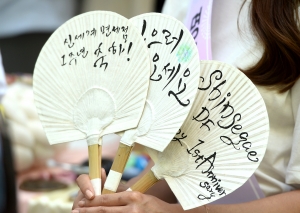 신세계 면세점
오픈 1주년 축하!
!으러
오세요
Shinsegae
DF
1st Anniver
sary